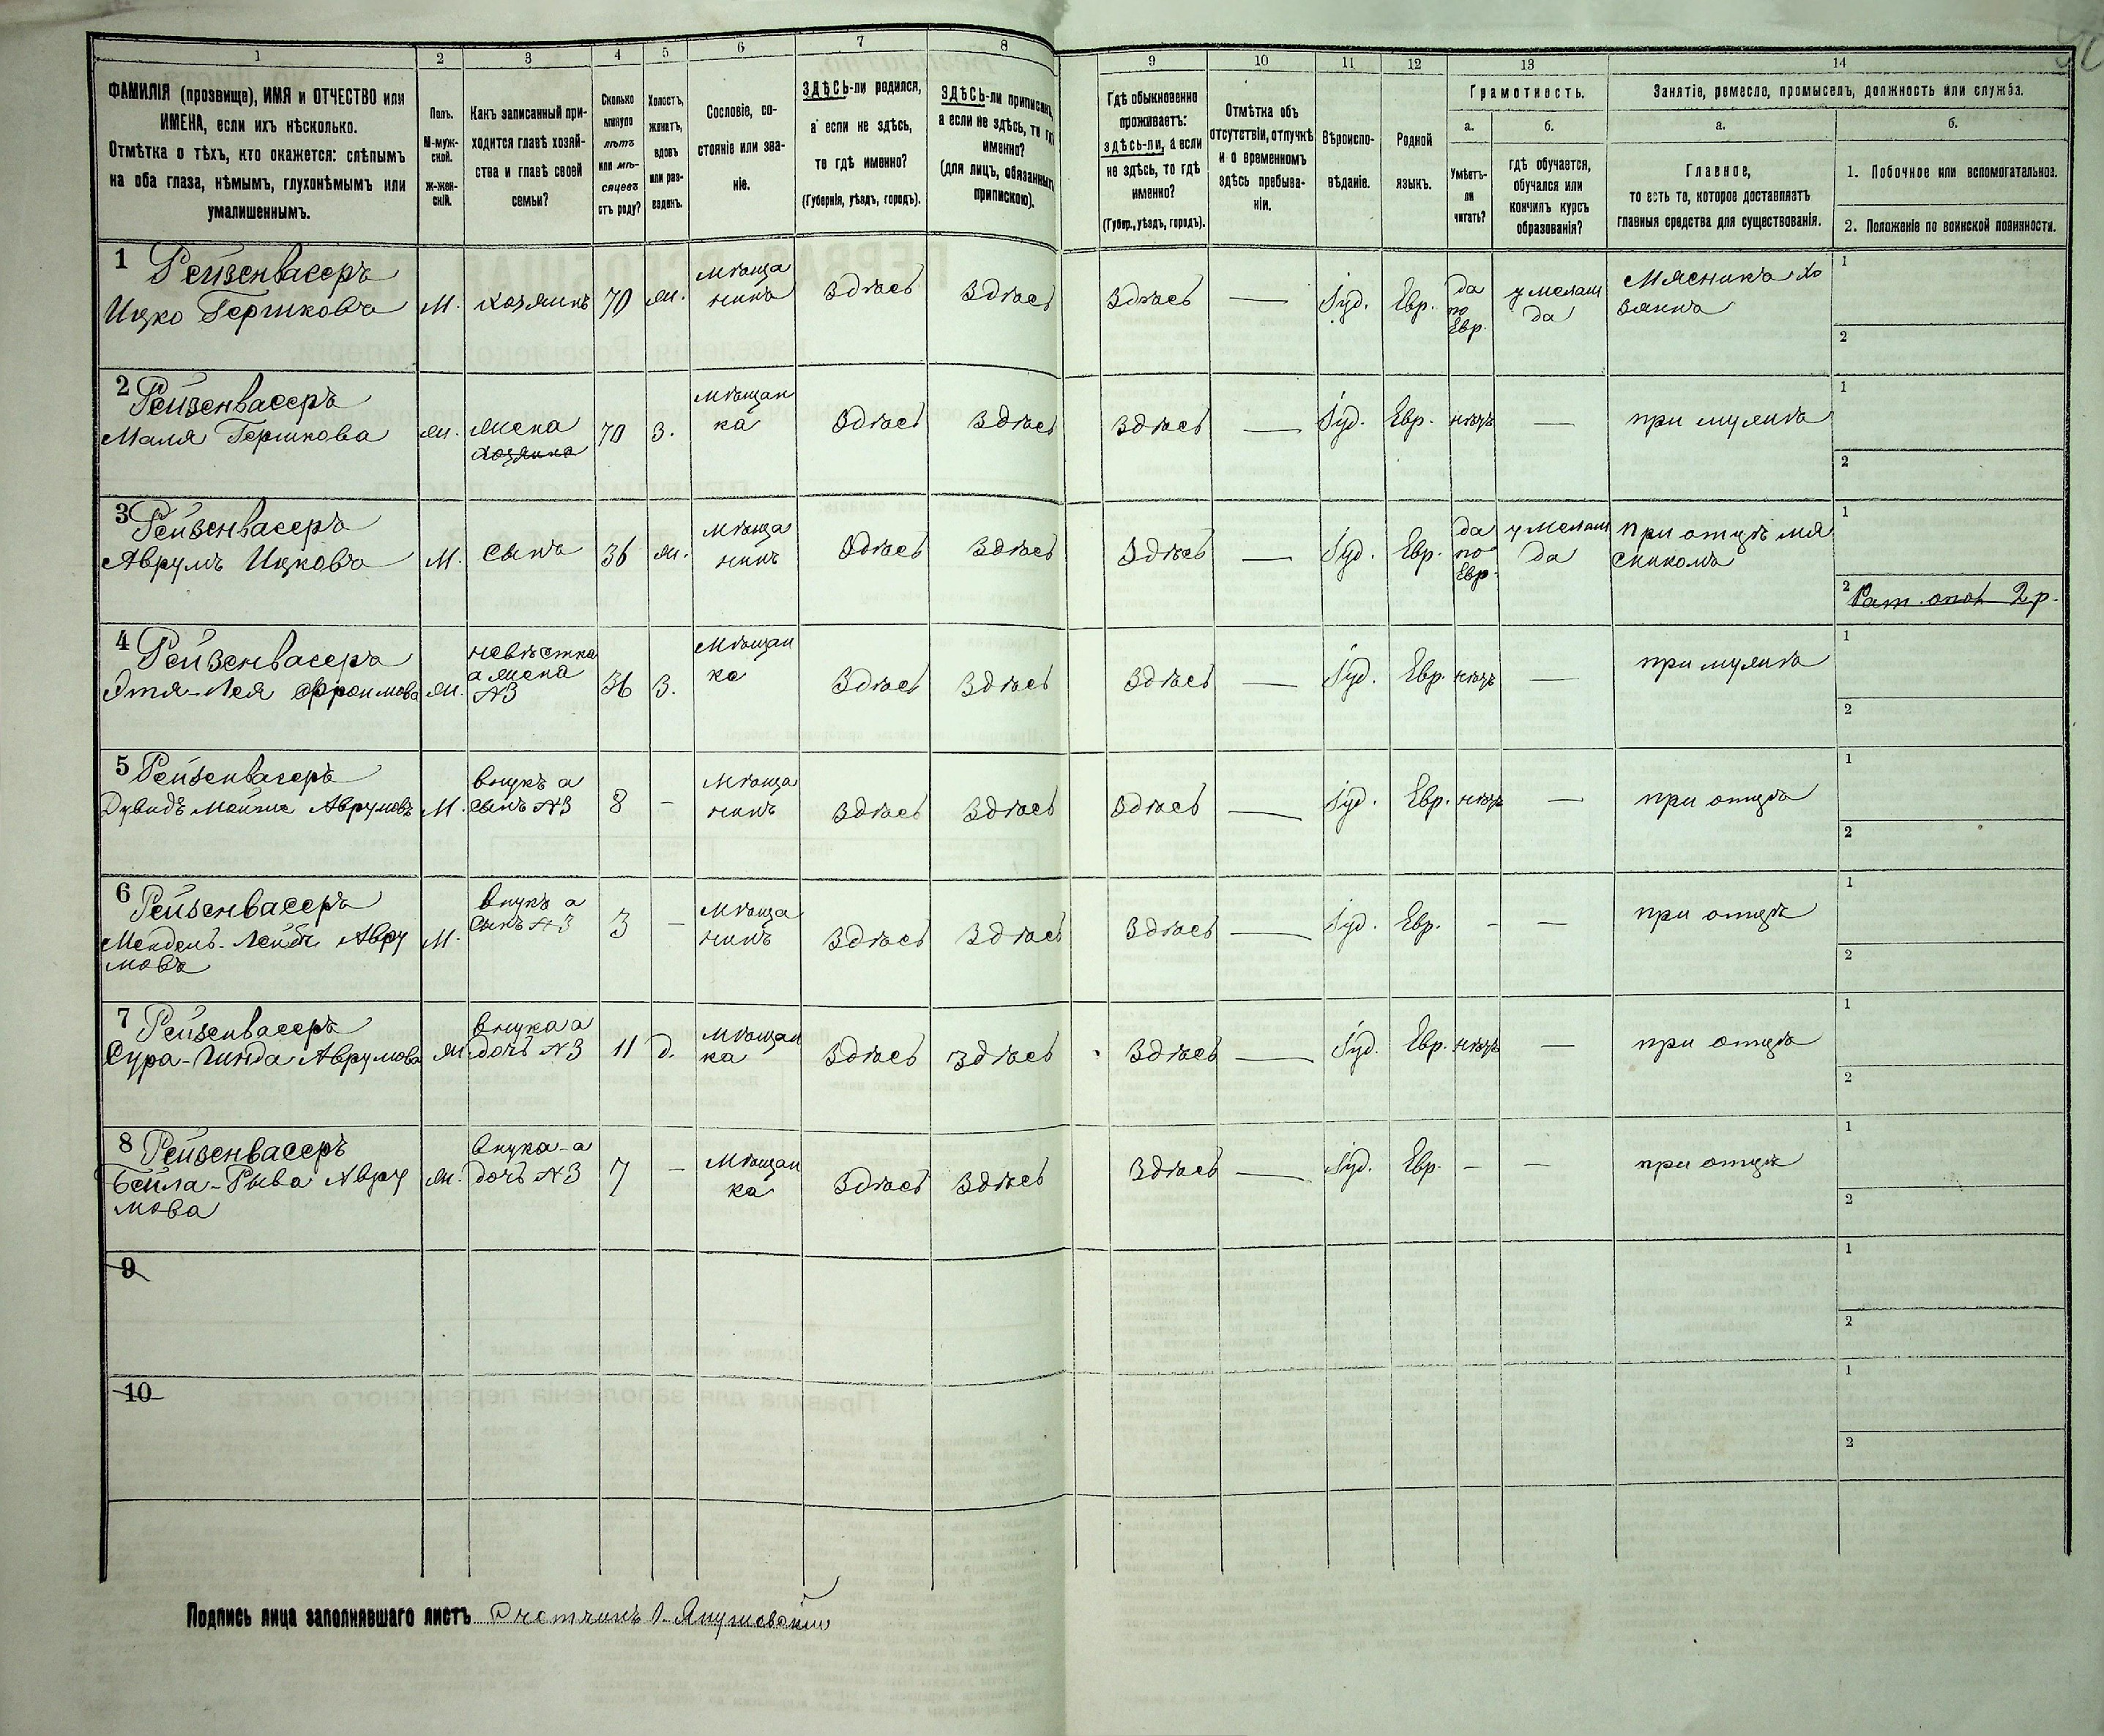 1 2 3 4 5 6 7 8 9 10 11 12 13 14
ФАМИЛІЯ (прозвище), ИМЯ и ОТЧЕСТВО или
ИМЕНА, если ихъ нѣсколько.
Отмѣтка о тѣхъ, кто окажется: слѣпымъ
на оба глаза, нѣмымъ, глухонѣмымъ или
умалишеннымъ.
Полъ.
М-муж-
ской.
ж-жен-
скій.
Какъ записанный при-
ходится главѣ хозяй-
ства и главѣ своей
семьи?
Сколько
минуло
лѣтъ
или мѣ-
сяцевъ
отъ роду?
Холостъ,
женатъ,
вдовъ
или раз-
веденъ.
Сословіе, со-
стояніе или зва-
ніе.
ЗДѢСЬ-ли родился,
а если не здѣсь,
то гдѣ именно?
(Губернія, уѣздъ, городъ).
ЗДѢСЬ-ли приписанъ,
а если не здѣсь, то гдѣ
именно?
(для лицъ, обязанныхъ
припискою).
Гдѣ обыкновенно
проживаетъ:
здѣсь-ли, а если
не здѣсь, то гдѣ
именно?
(Губер., уѣздъ, городъ).
Отмѣтка объ
отсутствіи, отлучкѣ
и о временномъ
здѣсь пребыва-
ніи.
Вѣроиспо-
вѣданіе.
Родной
языкъ.
Грамотность.
а.
Умѣетъ-
ли
читать?
б.
гдѣ обучается,
обучался или
кончилъ курсъ
образованія?
Занятіе, ремесло, промыселъ, должность или служба.
а.
Главное,
то есть то, которое доставляетъ
главныя средства для существованія.
б.
1. Побочное или вспомогательное.
2. Положеніе по воинской повинности.
1 Рейзенвасеръ
Ицко Гершковъ М. хозяинъ 70 ж. Мѣща
нинъ Здѣсь Здѣсь Здѣсь — Іуд. Евр. да
по
Евр. у мелам
да Мясникъ хо
зяинъ 1
2
2 Рейзенвасеръ
Маля Гершкова ж. жена
хозяина 70 З. Мѣщан
ка Здѣсь Здѣсь Здѣсь — Іуд. Евр. нѣтъ — при мужѣ 1
2
3 Рейзенвасеръ
Аврумъ Ицковъ М. сынъ 36 ж. Мѣща
нинъ Здѣсь Здѣсь Здѣсь — Іуд. Евр. да
по
Евр. у мелам
да при отцѣ мя
сникомъ 1
2 Рат. опол 2 р.
4 Рейзенвасеръ
Этя-Лея Фроимова ж. невѣстка
а жена
№3 36 З. Мѣщан
ка Здѣсь Здѣсь Здѣсь — Іуд. Евр. нѣтъ — при мужѣ 1
2
5 Рейзенвасеръ
Дувидъ Мойше Аврумовъ М. внукъ а
сынъ №3 8 – Мѣща
нинъ Здѣсь Здѣсь Здѣсь — Іуд. Евр. нѣтъ — при отцѣ 1
2
6 Рейзенвасеръ
Мендель-Лейбъ Авру
мовъ М. внукъ а
сынъ №3 3 – Мѣща
нинъ Здѣсь Здѣсь Здѣсь — Іуд. Евр. – — при отцѣ 1
2
7 Рейзенвасеръ
Сура-Гинда Аврумова ж. внука а
дочь №3 11 д. Мѣщан
ка Здѣсь Здѣсь Здѣсь — Іуд. Евр. нѣтъ — при отцѣ 1
2
8 Рейзенвасеръ
Бейла-Рыва Авру
мова ж. внука-а
дочь №3 7 – Мѣщан
ка Здѣсь Здѣсь Здѣсь — Іуд. Евр. – – при отцѣ 1
2
9 1
2
10 1
2
Подпись лица заполнявшаго листъ Счетчикъ Янушевскій